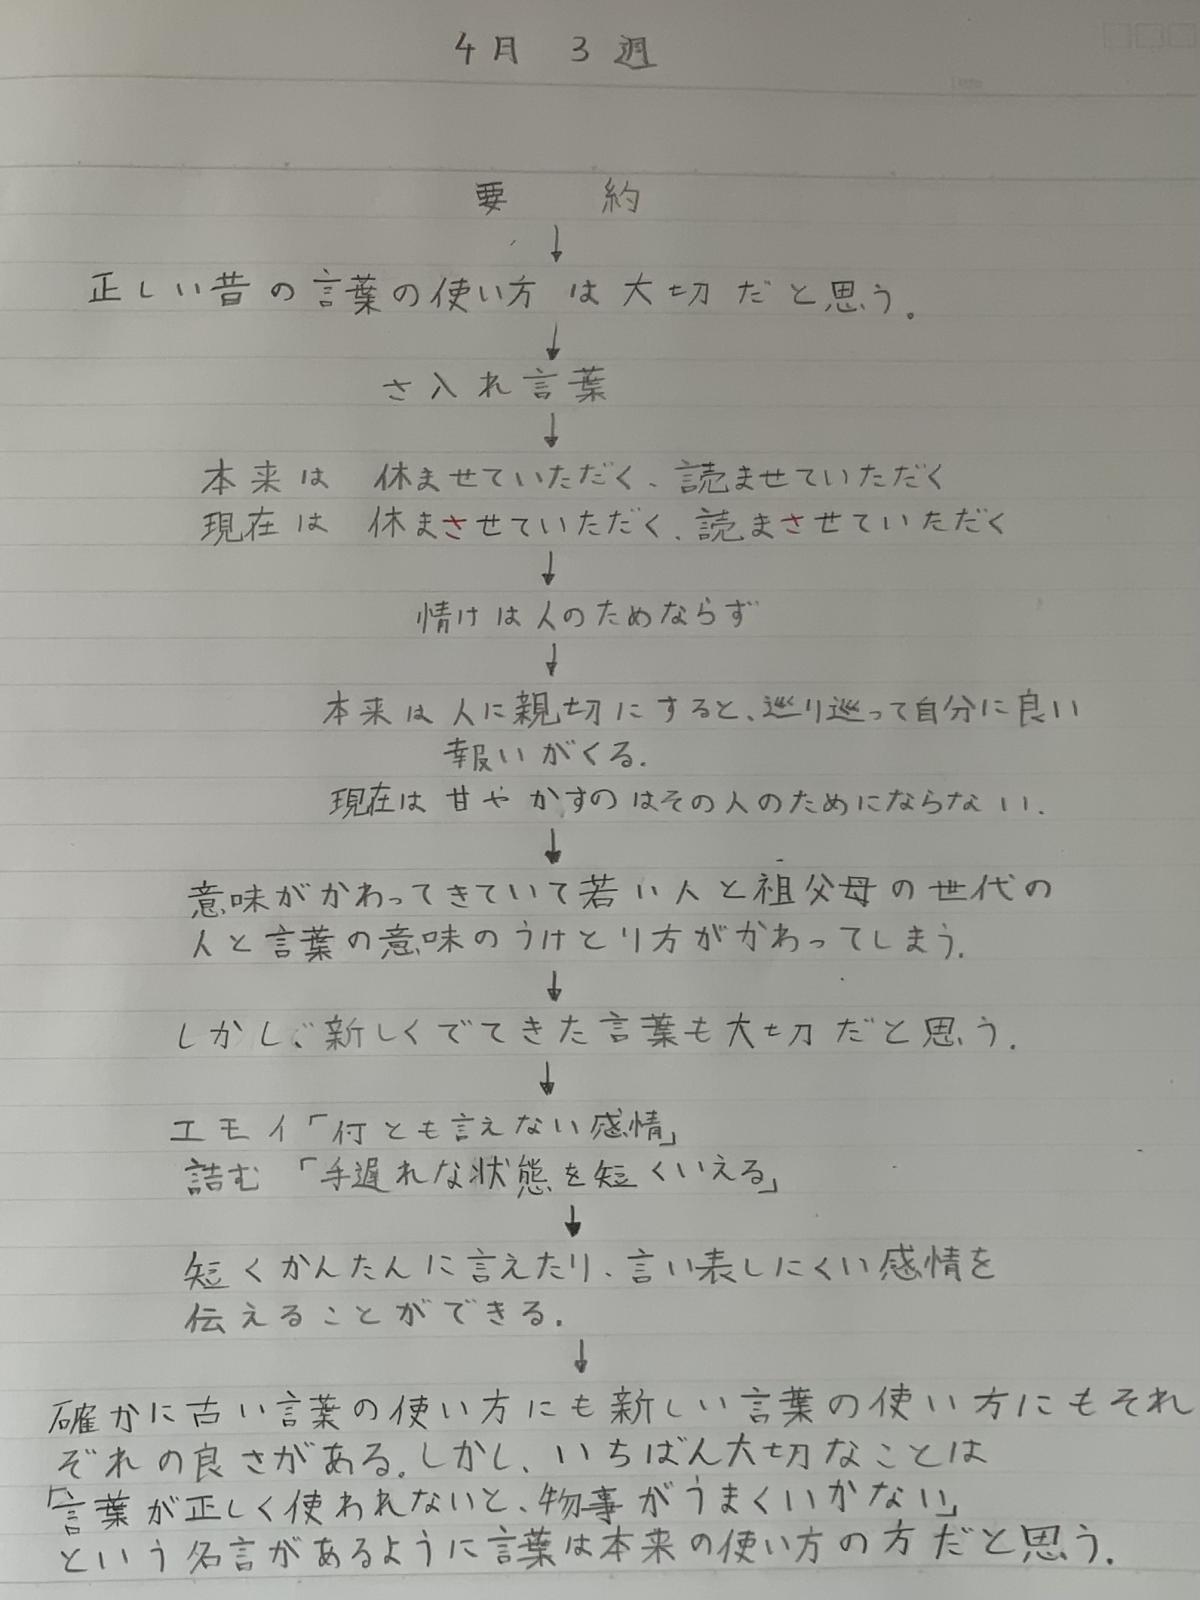 4月 3週
要 約
↓
正しい昔の言葉の使い方は大切だと思う。
↓
さ入れ言葉
↓
本来は 休ませていただく、読ませていただく
現在は 休まさせていただく、読まさせていただく
↓
情けは人のためならず
↓
本来は人に親切にすると、巡り巡って自分に良い
報いがくる.
現在は甘やかすのはその人のためにならない.
↓
意味がかわってきていて若い人と祖父母の世代の
人と言葉の意味のうけとり方がかわってしまう.
↓
しかし、新しくでてきた言葉も大切だと思う.
↓
エモイ「何とも言えない感情」
詰む「手遅れな状態を短くいえる」
↓
短くかんたんに言えたり、言い表しにくい感情を
伝えることができる.
↓
確かに古い言葉の使い方にも新しい言葉の使い方にもそれ
ぞれの良さがある.しかし、いちばん大切なことは
「言葉が正しく使われないと、物事がうまくいかない」
という名言があるように言葉は本来の使い方の方だと思う.